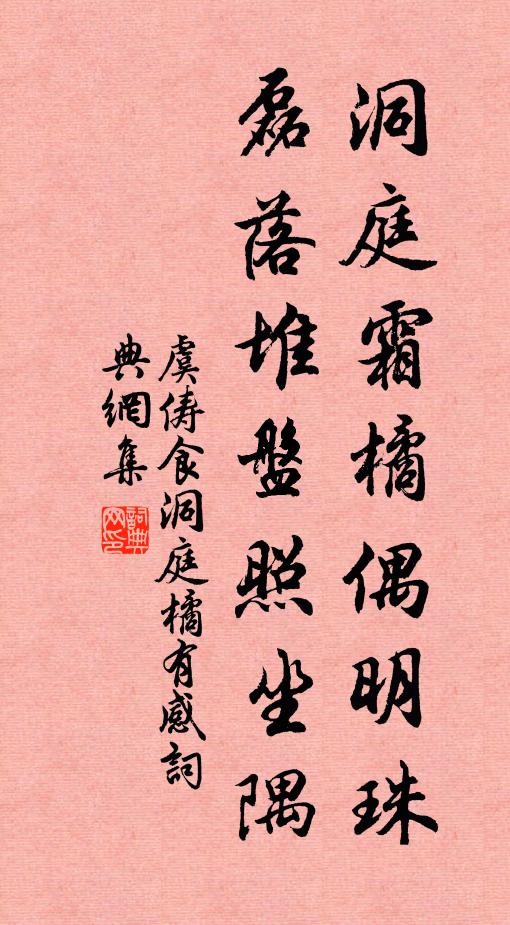 洞庭霜橘偶明珠
磊落堆盤照坐隅
虞儔食洞庭橘有感詞
典網集
詞典網印